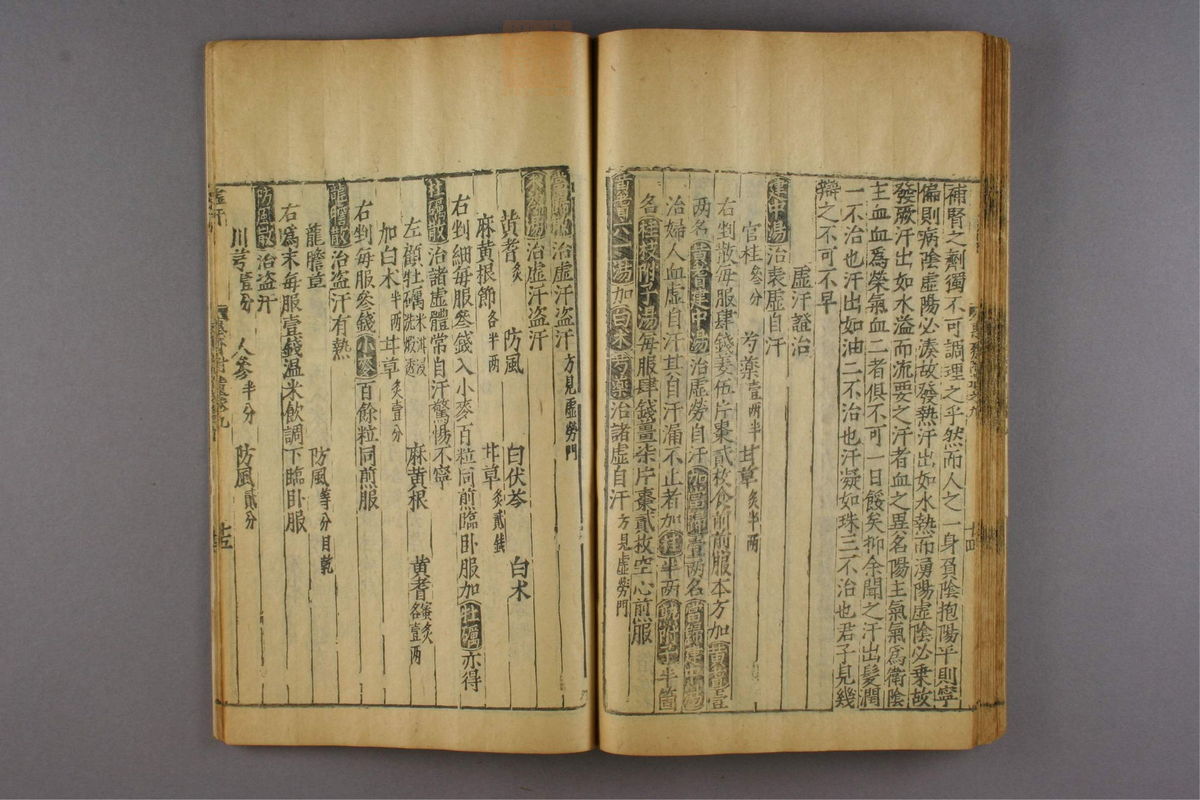 補腎之劑獨不可調理之乎然而人之一身負陰抱陽平則寧
偏則病陰虛陽必湊故發熱汗出如水熱而湧陽虛陰必乗故
發厥汗出如水溢而流要之汗者血之異名陽主氣氣爲衛陰
主血血爲榮氣血二者俱不可一日餒矣抑余聞之汗出髮潤
一不治也汗出如油二不治也汗凝如珠三不治也君子見幾
辯之不可不早
虛汗證治
建中湯治表虛自汗
官桂叄分 芍藥壹兩半 甘草炙半兩
右剉散每服肆錢姜伍片棗貳枚食前煎服本方加黃耆壹
两名黃耆建中湯治虛勞自汗加當歸壹两名當歸建中湯
治婦人血虛自汗其自汗漏不止者加桂半两熟附子半箇
名桂枝附子湯每服肆錢薑柒片棗貳枚空心煎服
黃耆六一湯加白术芍藥治諸虛自汗方見虛勞門
治虛汗盜汗方見虛勞門
湯治虛汗盜汗
黃耆炙 防風 白伏苓 白术
麻黃根節各半兩 甘草炙貳錢
右剉細每服叄錢入小麥百粒同煎臨卧服加牡礪亦得
牡礪散治諸虛體常自汗驚惕不寧
左顧牡礪 麻黃根 黃耆蜜炙各壹两
加白木半两甘草炙壹分
右剉每服叄錢小麥百餘粒同煎服
龍膽散治盜汗有熱
龍膽草 防風等分目乾
右爲末每服壹錢温米飲調下臨卧服
防風散治盜汗
川芎壹分 人參半分 防風貳分
虛汗
十四
十五